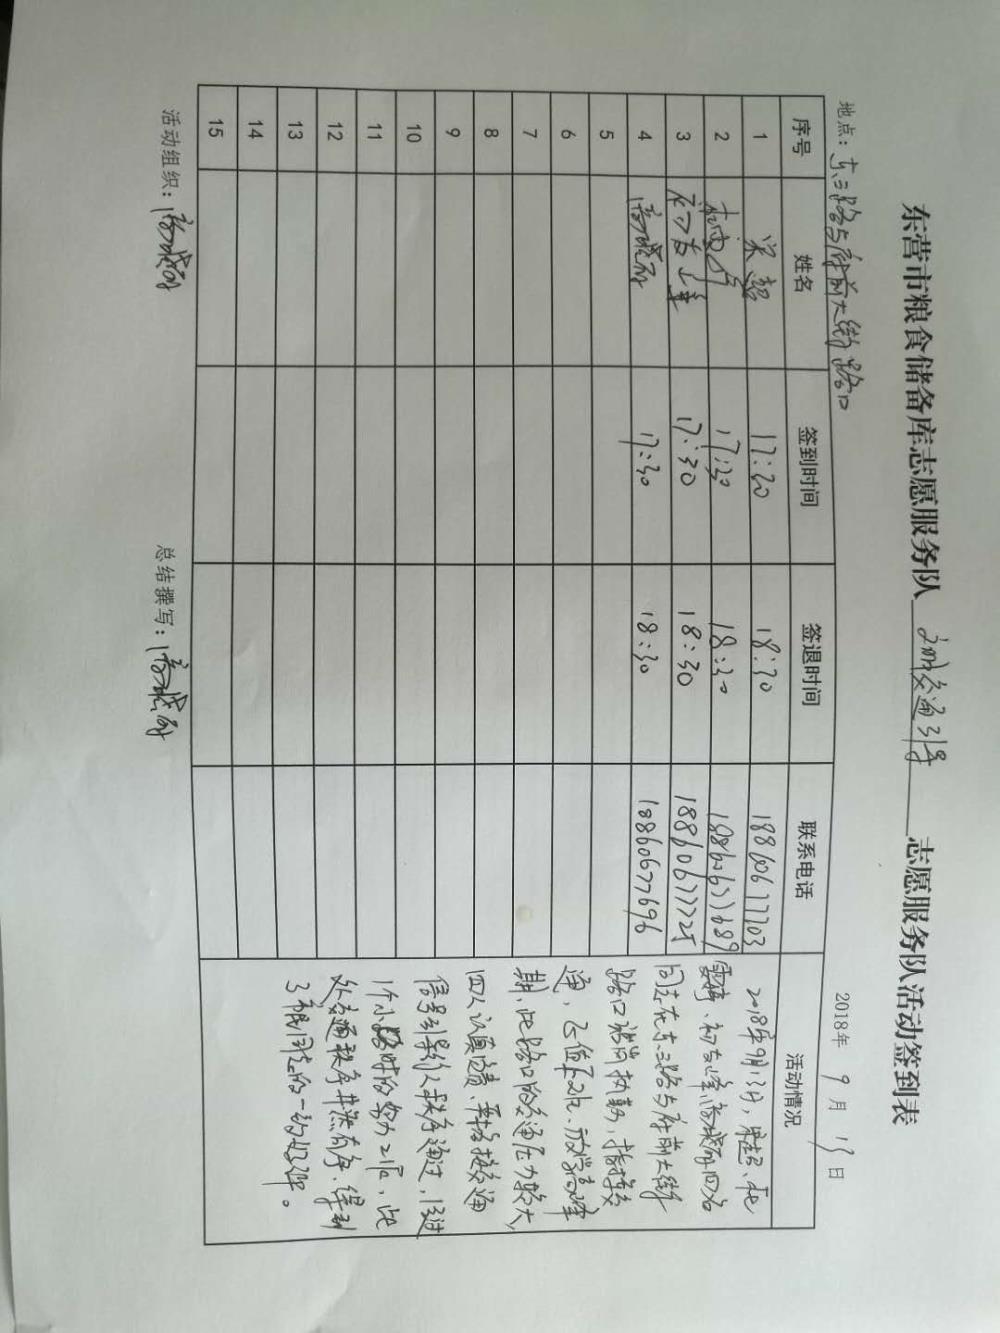 东营市粮食储备库志愿服务队 交通引导 志愿服务队活动签到表
地点：东三路与府前大街路口 2018年 9月 13日
序号 姓名 签到时间 签退时间 联系电话 活动情况
1 宋超 17:30 18:30 18860677703
2 17:30 18:30 18860677689
3 初吉峰 17:30 18:30 18860677725
4 17:30 18:30 18860677696
5
6
7
8
9
10
11
12
13
14
15
2018年9月13日，宋超、
四名
同志在东三路与府前大街
路口指挥执勤，指挥交
通，正值下班、放学高峰
期，此路口的交通压力较大，
四人认真负责、指挥交通
信号引导行人有序通过，经过
1个小时的努力，此
处交通秩序井然有序，得到
了的一致好评。
活动组织： 总结撰写：